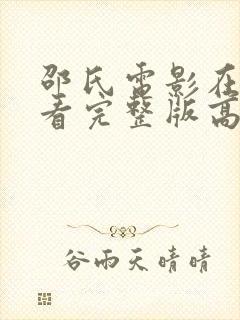 邵氏电影在
看完整版高
谷雨天晴晴